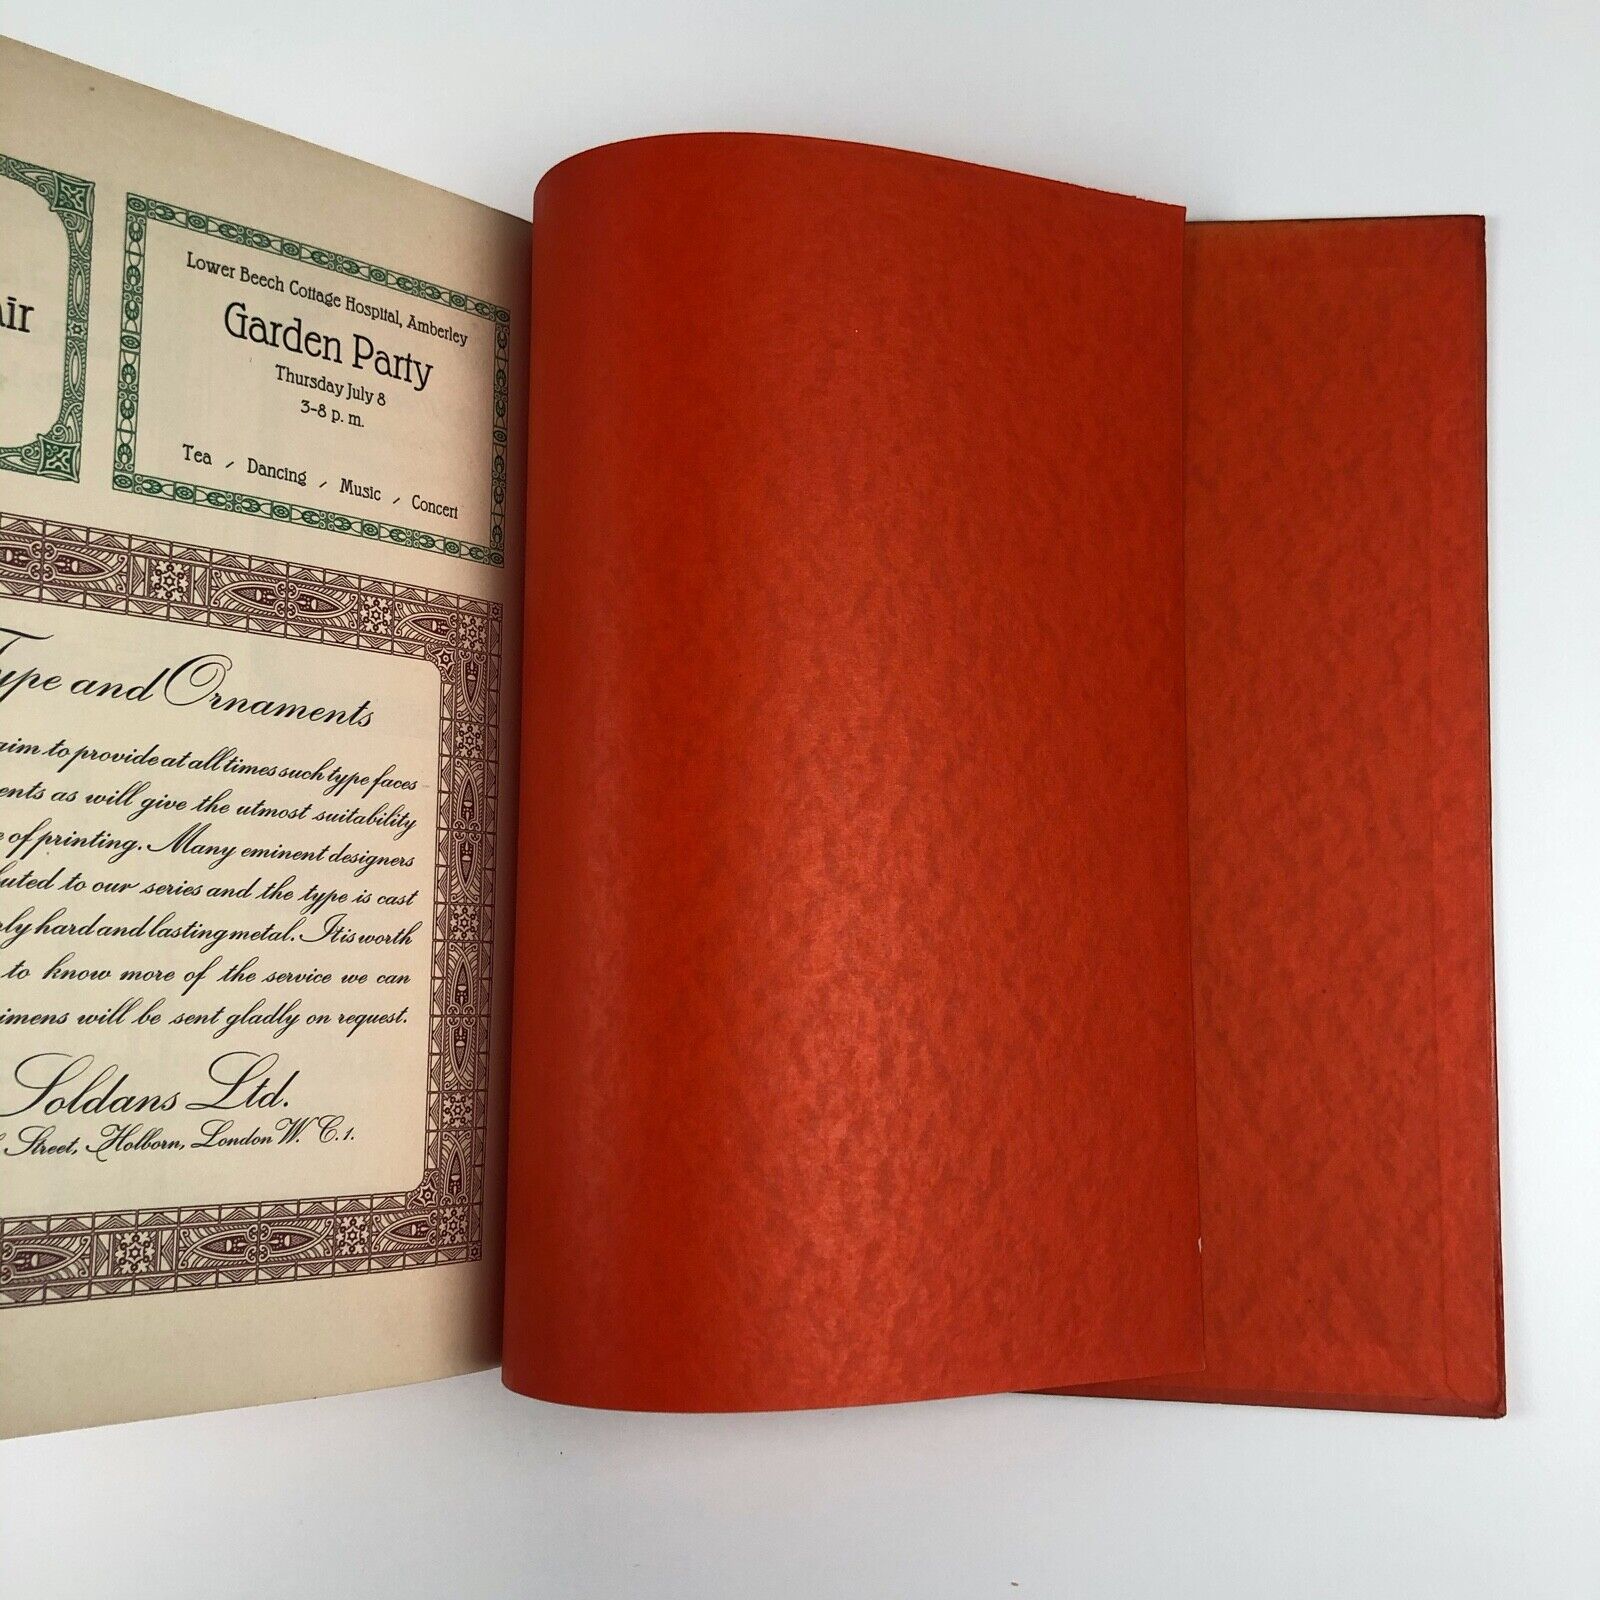 Lower Beech Cottage Hospital, Amberley
Garden Party
Thursday July 8
3-8 p. m.
Tea / Dancing / Music / Concert
and Ornaments
aim to provide at all times such type faces
as will give the utmost suitability
of printing. Many eminent designers
to our series and the type is cast
hard and lasting metal. It is worth
to know more of the service we can
will be sent gladly on request.
Soldans Ltd.
Street, Holborn, London W. C. 1.